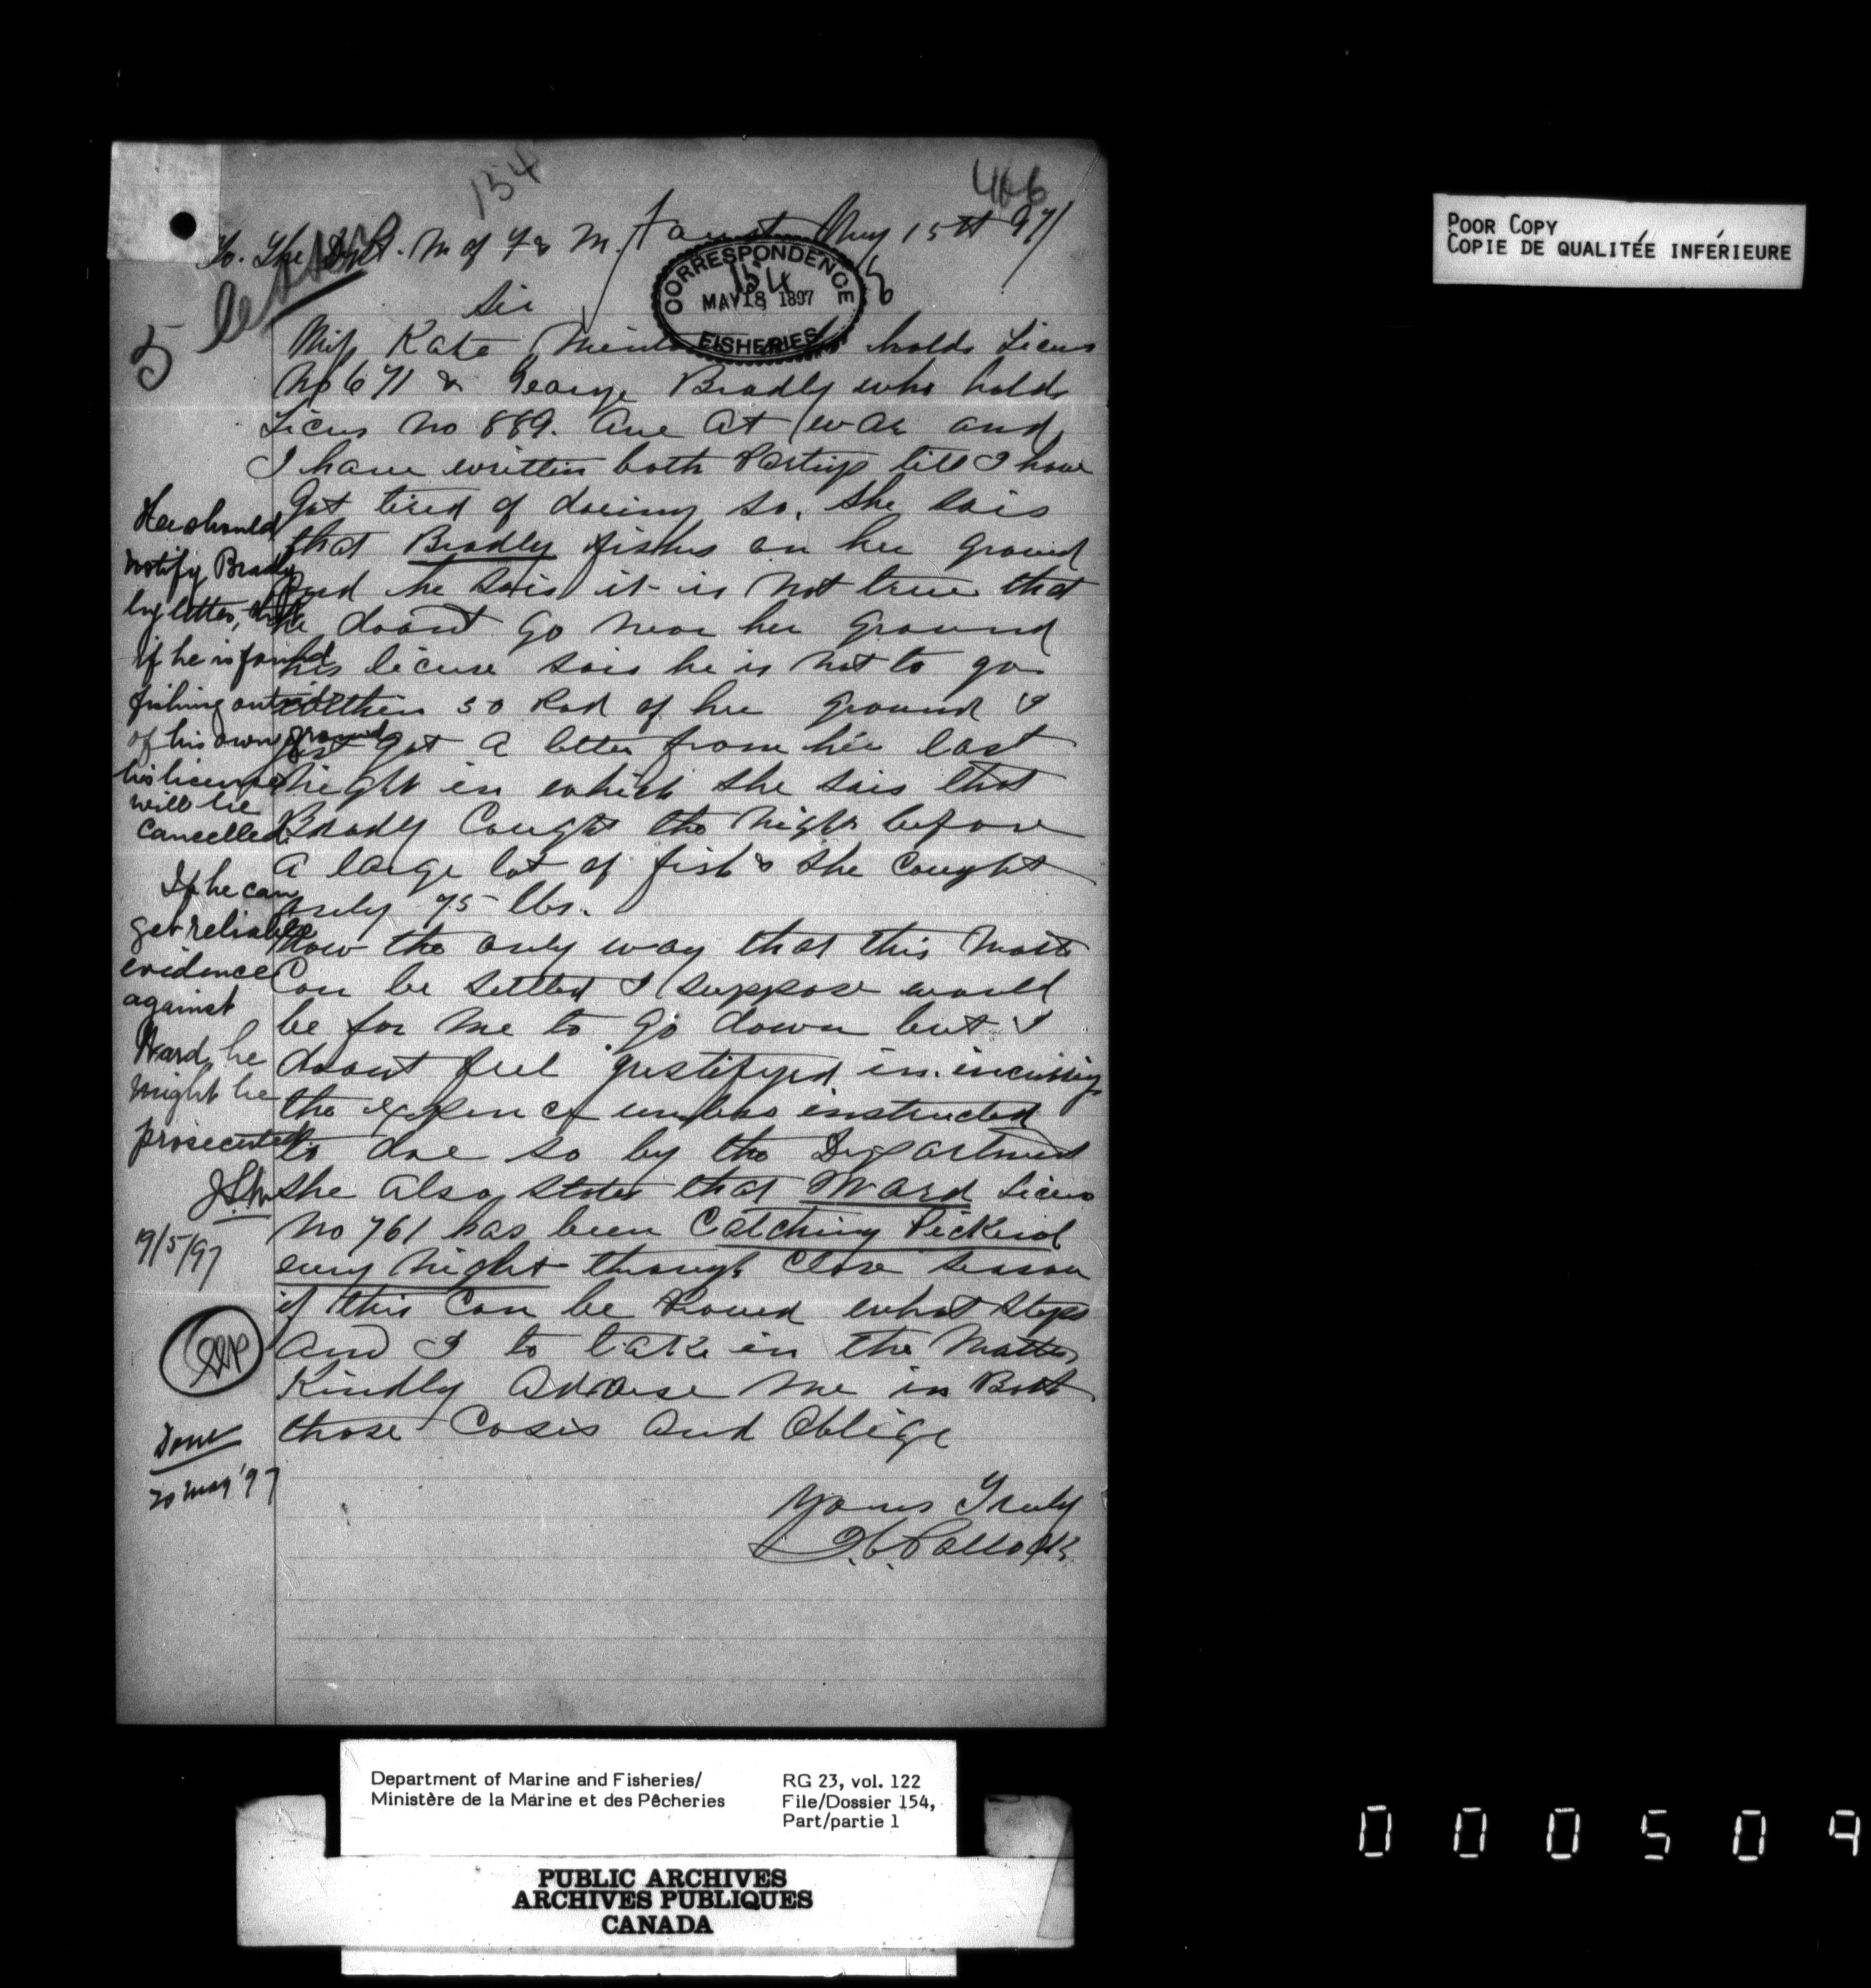 154
466
To. The Dept. M of F & M. May 15th 97
CORRESPONDENCE
154
MAY 18 1897
FISHERIES
Sir
5
Miss Kate holds Licens
No 671 & George Bradly who holds
Licens no 889. are at war and
I have written both Partys till I have
got tired of doeing so. She sais
that Bradly fishes on her ground
and he sais it is not true that
he doant go near her ground
his licence sais he is not to go
within 50 Rod of her ground I
just got a letter from her last
night in which she sais that
Bradly Caught the night before
a large lot of fish & she Caught
only 75 lbs.
Now the only way that this Matter
Can be settled I suppose would
be for me to go down but I
doant feel justifyed in incuring
the expence unless instructed
to doe so by the Department
she also states that Ward Licens
No 761 has been Catching Pickerel
every night through Close season
if this Can be Proved what steps
am I to take in the Matter
Kindly advise me in Both
those Cases and Oblige
Yours Truly
Pollock
He should
notify Bradly
by letter, that
if he is found
fishing outside
of his own ground
his licence
will be
cancelled.
If he can
get reliable
evidence
against
Ward, he
might be
prosecuted.
19/5/97
Done
20 May '97
POOR COPY
COPIE DE QUALITÉE INFÉRIEURE
Department of Marine and Fisheries/
Ministère de la Marine et des Pêcheries
RG 23, vol. 122
File/Dossier 154,
Part/partie 1
PUBLIC ARCHIVES
ARCHIVES PUBLIQUES
CANADA
000509